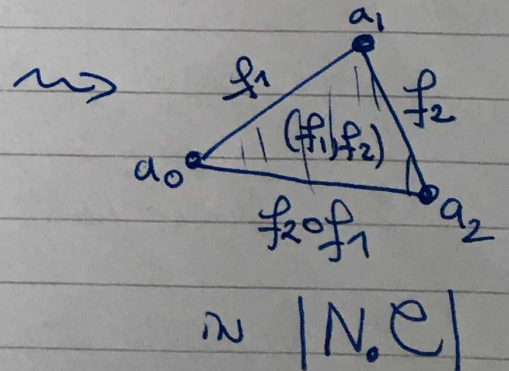 a₁
f₁
f₂
(f₁, f₂)
a₀
f₂∘f₁
a₂
in |N.C|